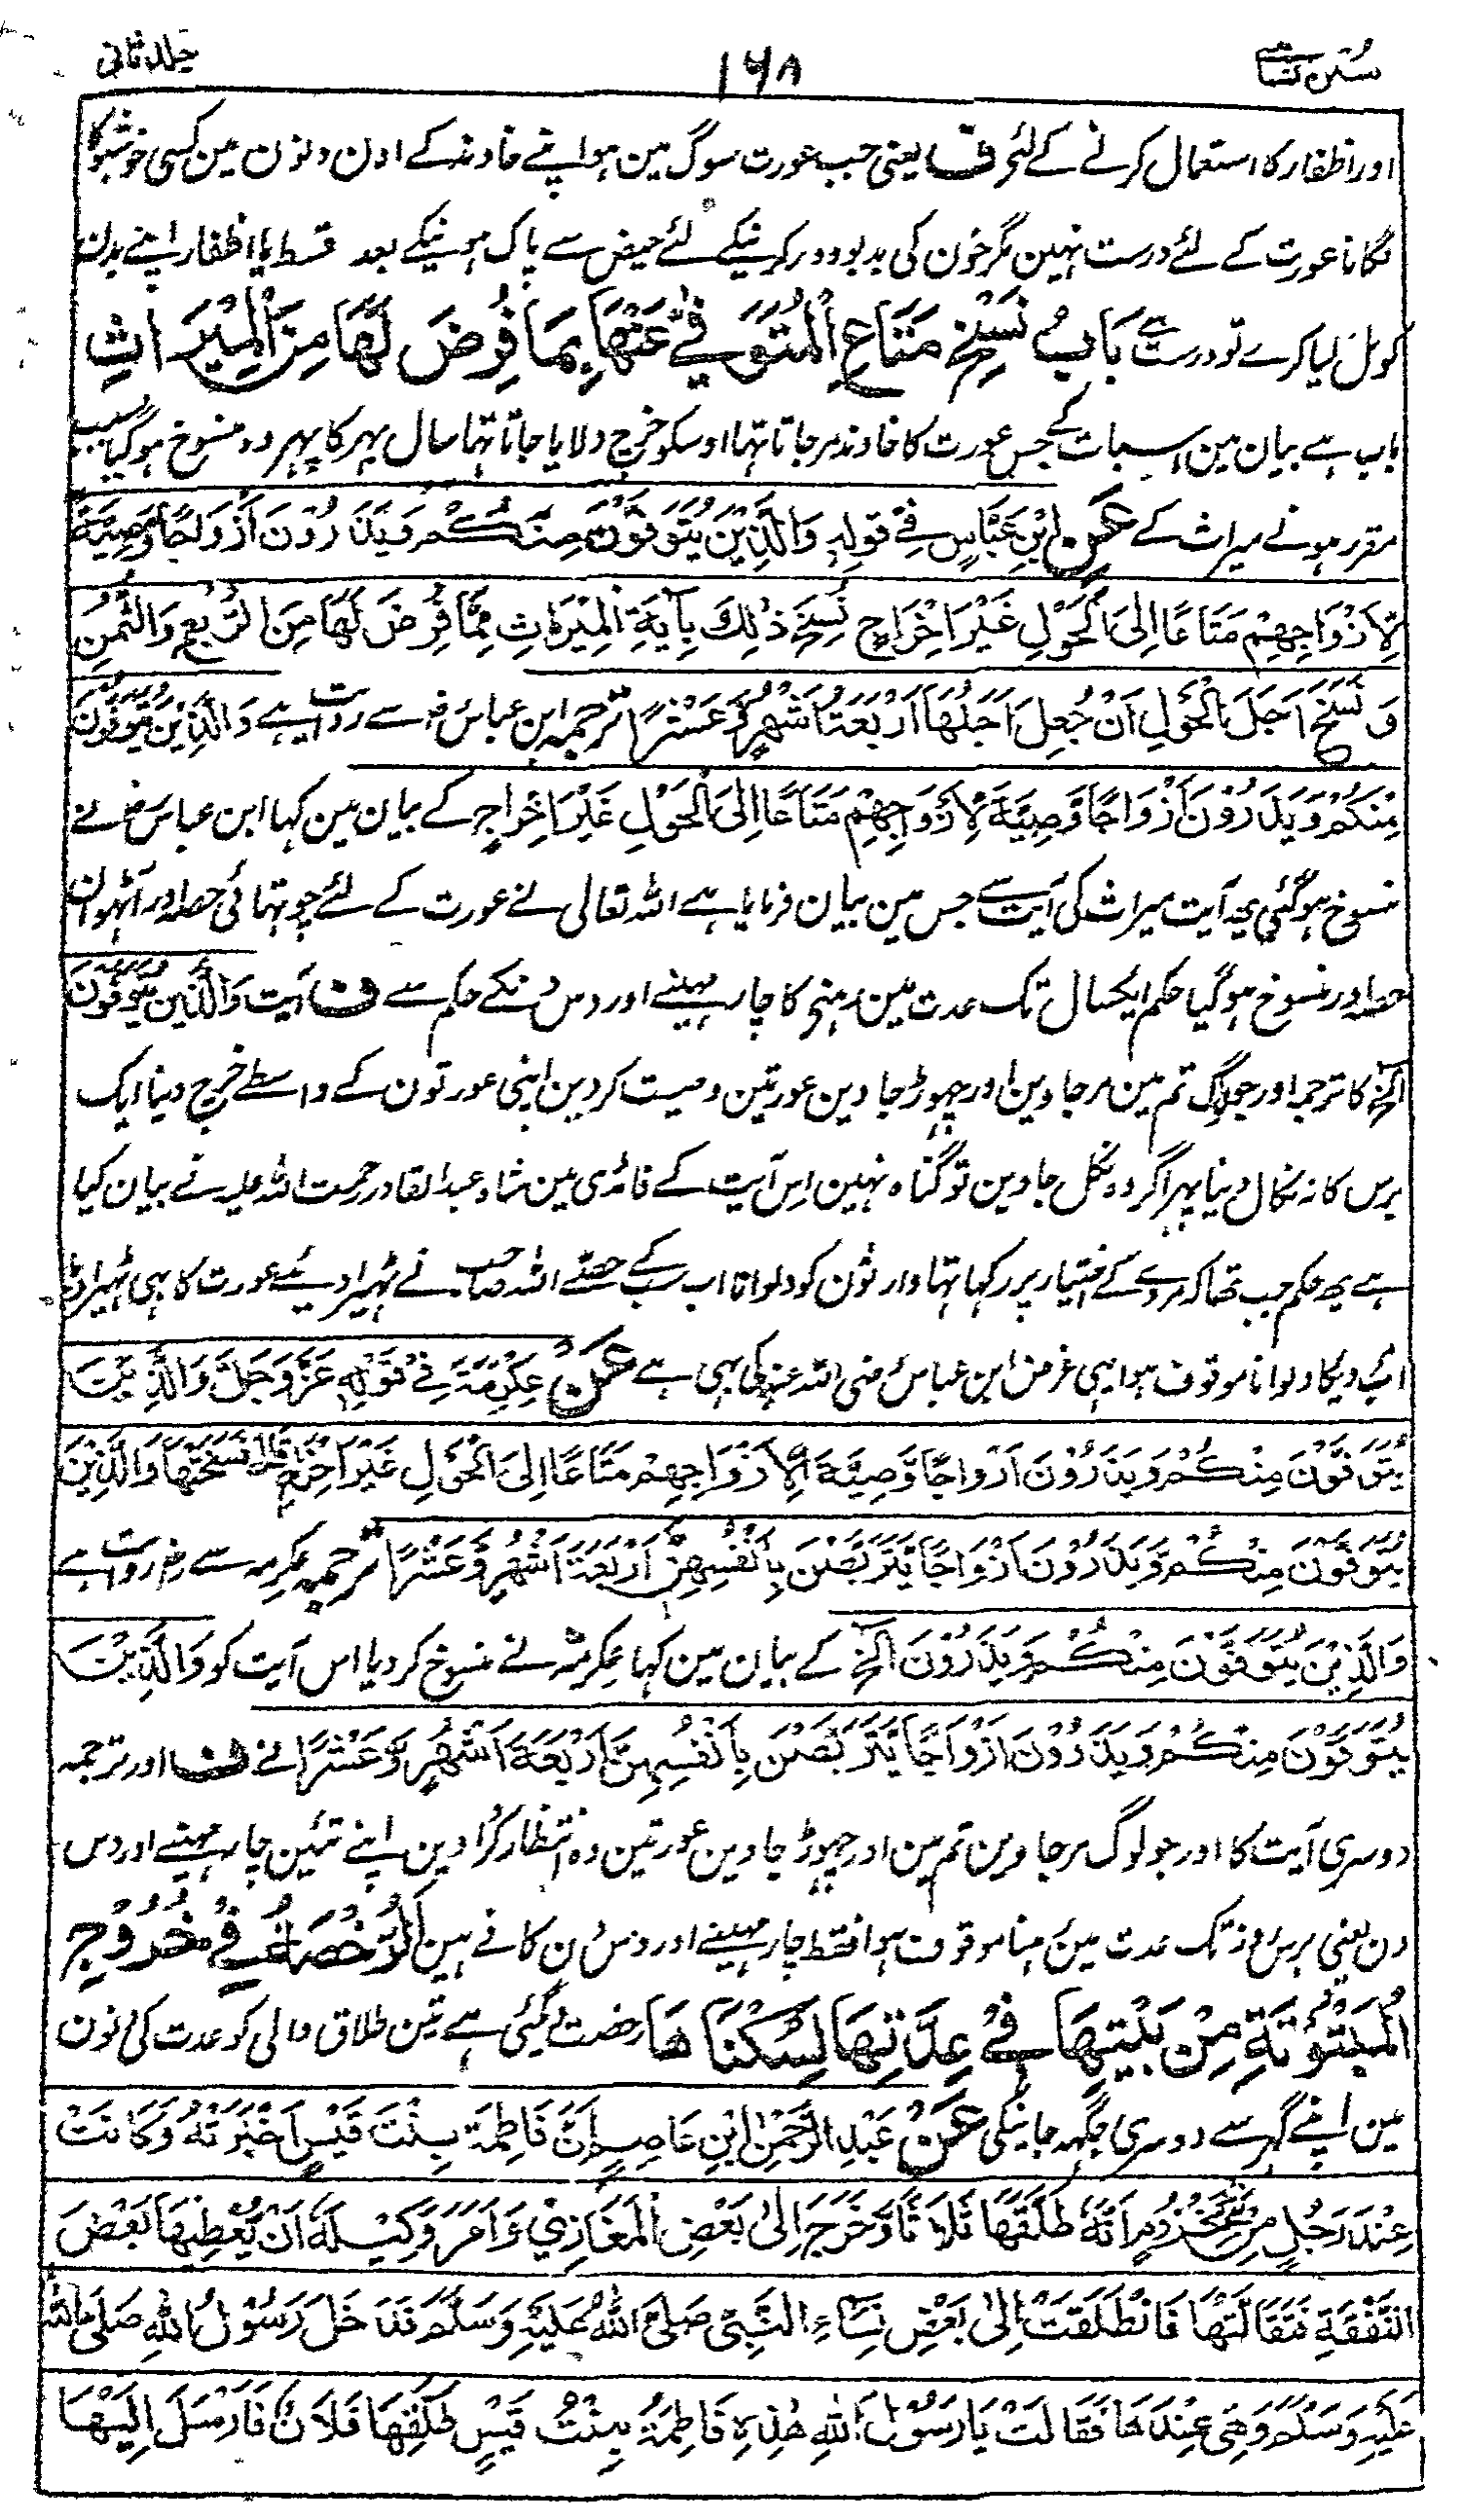 سنن نسائے
۱۶۸
جلد ثانی
اور اظفار کا استعمال کرنے کے لئے ف یعنی جب عورت سوگ مین ہو اپنے خاوند کے اون دنون مین کسی خوشبو کا
لگانا عورت کے لئے درست نہین مگر خون کی بدبو دور کرنیکے لئے حیض سے پاک ہونیکے بعد قسط یا اظفار اپنے بدن
کو مل لیا کرے تو درست ہے بَابُ نَسْخِ مَتَاعِ الْمُتَوَفّٰی عَنْهَا بِمَا فُرِضَ لَهَا مِنَ الْمِيْرَاثِ
باب ہے بیان مین اسبات کے جس عورت کا خاوند مر جاتا تہا اوسکو خرچ دلایا جاتا تہا سال بہر کا پہر وہ منسوخ ہوگیا بسبب
مقرر ہونے میراث کے عَنِ ابْنِ عَبَّاسٍ فِيْ قَوْلِهٖ وَالَّذِيْنَ يُتَوَفَّوْنَ مِنْكُمْ وَيَذَرُوْنَ أَزْوَاجًا وَّصِيَّةً
لِّاَزْوَاجِهِمْ مَتَاعًا اِلَى الْحَوْلِ غَيْرَ اِخْرَاجٍ نُسِخَ ذٰلِكَ بِاٰيَةِ الْمِيْرَاثِ مِمَّا فُرِضَ لَهَا مِنَ الرُّبُعِ وَالثُّمُنِ
وَنَسَخَ اَجَلَ الْحَوْلِ اَنْ جُعِلَ اَجَلُهَا اَرْبَعَةَ اَشْهُرٍ وَّعَشْرًا ترجمہ ابن عباس رض سے روایت ہے وَالَّذِيْنَ يُتَوَفَّوْنَ
مِنْكُمْ وَيَذَرُوْنَ اَزْوَاجًا وَّصِيَّةً لِّاَزْوَاجِهِمْ مَتَاعًا اِلَى الْحَوْلِ غَيْرَ اِخْرَاجٍ کے بیان مین کہا ابن عباس رض نے
منسوخ ہوگئی یہ آیت میراث کی آیت سے جس مین بیان فرمایا ہے اللہ تعالی نے عورت کے لئے چوتہائی حصہ اور آٹہوان
حصہ اور منسوخ ہوگیا حکم ایکسال تک عدت مین رہنے کا چار مہینے اور دس دنکے حکم سے ف آیت وَالَّذِيْنَ يُتَوَفَّوْنَ
الخ کا ترجمہ اور جو لوگ تم مین مر جاوین اور چہوڑ جاوین عورتین وصیت کردین اپنی عورتون کے واسطے خرچ دینا ایک
برس کا نہ نکال دینا پہر اگر وہ نکل جاوین تو گناہ نہین اس آیت کے فائدی مین شاہ عبدالقادر رحمت اللہ علیہ نے بیان کیا
ہے یہ حکم جب تھا کہ مردے کے اختیار پر رکہا تہا وارثون کو دلوانا اب سب کے حصے اللہ صاحب نے ٹہیرا دیے عورت کا بہی ٹہیرا دیا
اب دیکا دلوانا موقوف ہوا یہی غرض ابن عباس رضی اللہ عنہ کی بہی ہے عَنْ عِكْرِمَةَ فِيْ قَوْلِهٖ عَزَّ وَجَلَّ وَالَّذِيْنَ
يُتَوَفَّوْنَ مِنْكُمْ وَيَذَرُوْنَ اَزْوَاجًا وَّصِيَّةً لِّاَزْوَاجِهِمْ مَتَاعًا اِلَى الْحَوْلِ غَيْرَ اِخْرَاجٍ قَالَ نَسَخَتْهَا وَالَّذِيْنَ
يُتَوَفَّوْنَ مِنْكُمْ وَيَذَرُوْنَ اَزْوَاجًا يَّتَرَبَّصْنَ بِاَنْفُسِهِنَّ اَرْبَعَةَ اَشْهُرٍ وَّعَشْرًا ترجمہ عکرمہ سے روایت ہے
وَالَّذِيْنَ يُتَوَفَّوْنَ مِنْكُمْ وَيَذَرُوْنَ الخ کے بیان مین کہا عکرمہ نے منسوخ کردیا اس آیت کو وَالَّذِيْنَ
يُتَوَفَّوْنَ مِنْكُمْ وَيَذَرُوْنَ اَزْوَاجًا يَّتَرَبَّصْنَ بِاَنْفُسِهِنَّ اَرْبَعَةَ اَشْهُرٍ وَّعَشْرًا نے ف اور ترجمہ
دوسری آیت کا اور جو لوگ مر جاوین تم مین اور چہوڑ جاوین عورتین وہ انتظار کرادین اپنے تئین چار مہینے اور دس
دن یعنی برس روز تک عدت مین رہنا موقوف ہوا فقط چار مہینے اور دس دن کافے ہین اَلرُّخْصَةُ فِيْ خُرُوْجِ
الْمَبْتُوْتَةِ مِنْ بَيْتِهَا فِيْ عِدَّتِهَا لِسُكْنَاهَا رخصت دیگئی ہے تین طلاق والی کو عدت کی دنون
مین اپنے گہر سے دوسری جگہہ جانیکی عَنْ عَبْدِ الرَّحْمٰنِ ابْنِ عَاصِمٍ اَنَّ فَاطِمَةَ بِنْتَ قَيْسٍ اَخْبَرَتْهُ وَكَانَتْ
عِنْدَ رَجُلٍ مِنْ بَنِيْ مَخْزُوْمٍ اَنَّهٗ طَلَّقَهَا ثَلَاثًا وَّخَرَجَ اِلٰى بَعْضِ الْمَغَازِيْ وَاَمَرَ وَكِيْلَهٗ اَنْ يُّعْطِيَهَا بَعْضَ
النَّفَقَةِ فَتَقَالَّتْهَا فَانْطَلَقَتْ اِلٰى بَعْضِ نِسَاءِ النَّبِيِّ صَلَّى اللهُ عَلَيْهِ وَسَلَّمَ فَدَخَلَ رَسُوْلُ اللهِ صَلَّى اللهُ
عَلَيْهِ وَسَلَّمَ وَهِيَ عِنْدَهَا فَقَالَتْ يَا رَسُوْلَ اللهِ هٰذِهٖ فَاطِمَةُ بِنْتُ قَيْسٍ طَلَّقَهَا فُلَانٌ فَاَرْسَلَ اِلَيْهَا